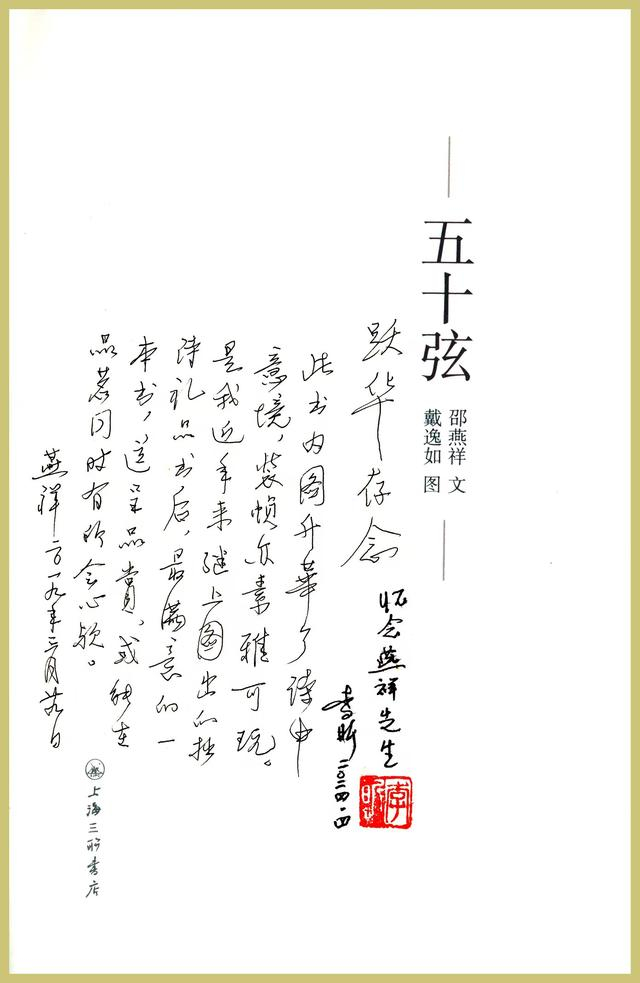 五十弦
邵燕祥 文
戴逸如 图
跃华存念
此书内图升华了诗中
意境，装帧亦素雅可玩。
是我近年来继上图出的拙
诗礼品书后，最满意的一
本书，送呈品赏，或能在
品茗同时有所会心欤。
燕祥 二〇一九年三月廿九日
怀念燕祥先生
李昕 二〇二四·四
李昕
上海三联书店